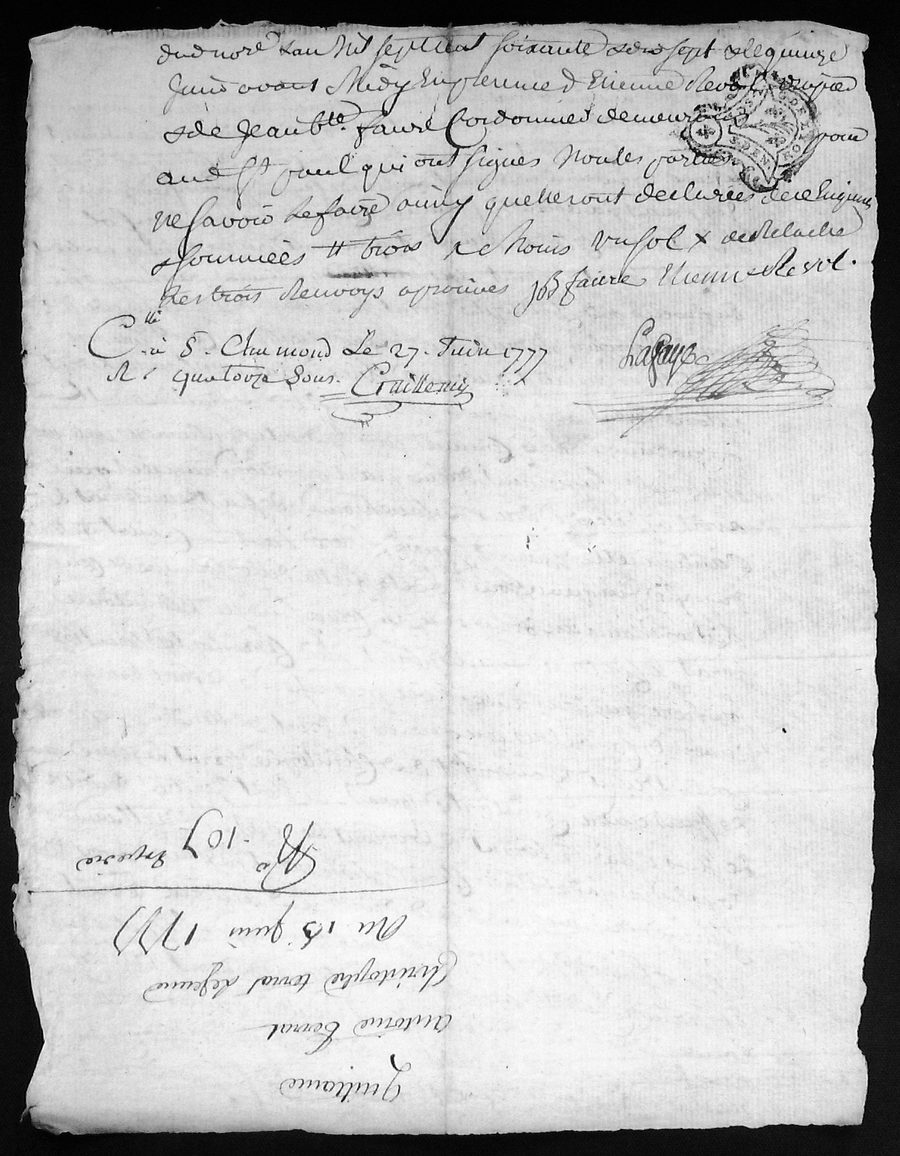 dud noré Lan Mil Sept Cent Soixante & dix Sept & le quinze
Juin avant Midy En presence d Etienne Revol
& de Jean Bte. faure Cordonnier demeurant
aud St paul qui ont signés Non les parties pour
ne Savoir le faire ainsy quelles ont declarées de ce Enquises
& Sommées # trois & Moins un sol x de Relache
Les trois Renvoys aprouvés JB faure Etienne Revol.
C.llé à St. Chamond Le 27. Juin 1777
R. quatorze Sous.
Lafaye
Quittance
Antoine terrat
Christophe terrat
Du 15 Juin 1777
No. 107 Expedié